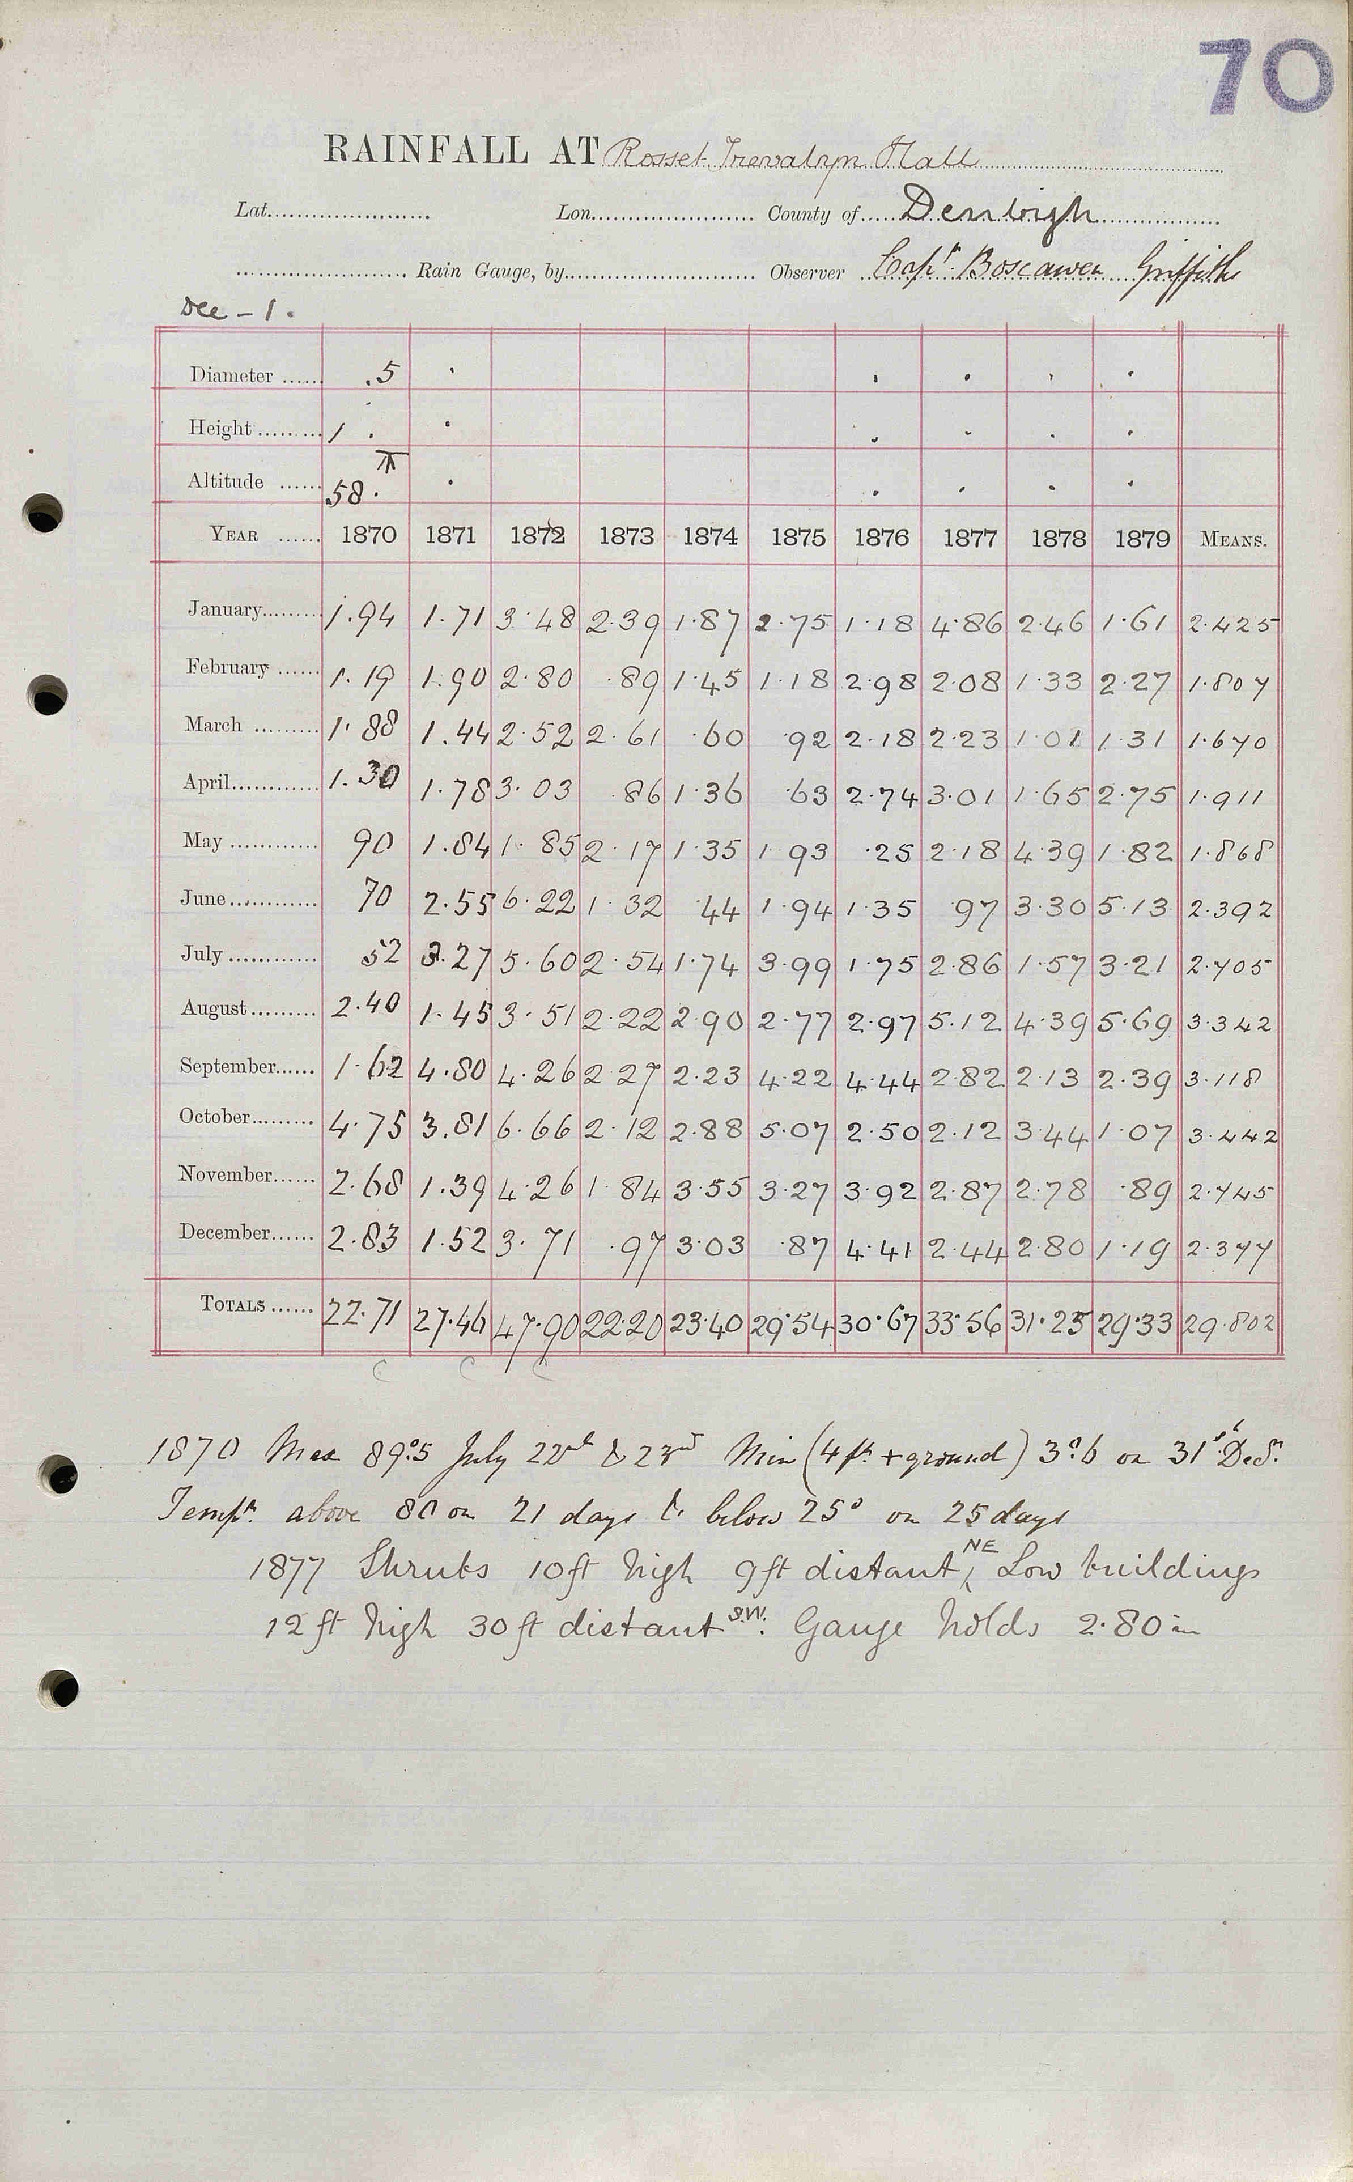 70
RAINFALL AT Rosset Trevalyn Hall
Lat. Lon. County of Denbigh
Rain Gauge, by Observer Capt. Boscawen Griffith
Dec - 1.
Diameter .5
Height 1 .
Altitude 58.
YEAR 1870 1871 1872 1873 1874 1875 1876 1877 1878 1879 MEANS.
January 1.94 1.71 3.48 2.39 1.87 2.75 1.18 4.86 2.46 1.61 2.425
February 1.19 1.90 2.80 .89 1.45 1.18 2.98 2.08 1.33 2.27 1.807
March 1.88 1.44 2.52 2.61 .60 .92 2.18 2.23 1.01 1.31 1.670
April 1.30 1.78 3.03 .86 1.36 .63 2.74 3.01 1.65 2.75 1.911
May 90 1.84 1.85 2.17 1.35 1.93 .25 2.18 4.39 1.82 1.868
June 70 2.55 6.22 1.32 .44 1.94 1.35 .97 3.30 5.13 2.392
July 52 3.27 5.60 2.54 1.74 3.99 1.75 2.86 1.57 3.21 2.705
August 2.40 1.45 3.51 2.22 2.90 2.77 2.97 5.12 4.39 5.69 3.342
September 1.62 4.80 4.26 2.27 2.23 4.22 4.44 2.82 2.13 2.39 3.118
October 4.75 3.81 6.66 2.12 2.88 5.07 2.50 2.12 3.44 1.07 3.442
November 2.68 1.39 4.26 1.84 3.55 3.27 3.92 2.87 2.78 .89 2.745
December 2.83 1.52 3.71 .97 3.03 .87 4.41 2.44 2.80 1.19 2.377
TOTALS 22.71 27.46 47.90 22.20 23.40 29.54 30.67 33.56 31.25 29.33 29.802
1870 Max 89°.5 July 22nd & 23rd Min (4 ft + ground) 3°.6 on 31st Dec.
Tempr. above 80 on 21 days & below 25° on 25 days
1877 Shrubs 10ft high 9ft distant NE, Low buildings
12 ft high 30 ft distant S.W. Gauge holds 2.80 in